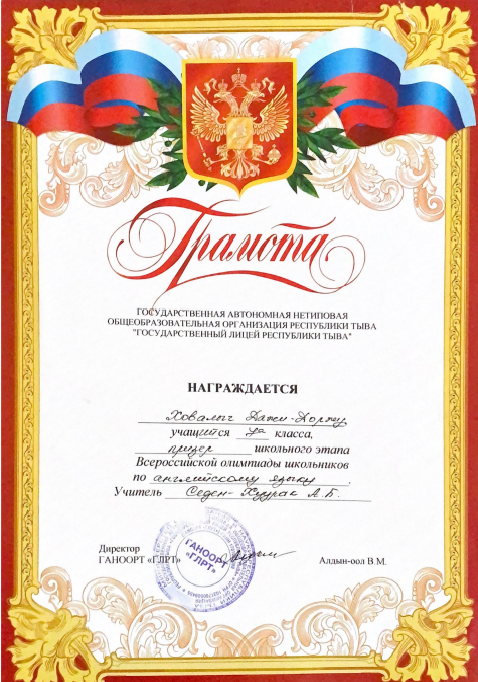 Грамота
ГОСУДАРСТВЕННАЯ АВТОНОМНАЯ НЕТИПОВАЯ
ОБЩЕОБРАЗОВАТЕЛЬНАЯ ОРГАНИЗАЦИЯ РЕСПУБЛИКИ ТЫВА
"ГОСУДАРСТВЕННЫЙ ЛИЦЕЙ РЕСПУБЛИКИ ТЫВА"
НАГРАЖДАЕТСЯ
Ховалыг Дажи-Доржу
учащийся класса,
призер школьного этапа
Всероссийской олимпиады школьников
по английскому языку.
Учитель Седен-Хуурак А.Б.
Директор
ГАНООРТ «ГЛРТ» Алдын-оол В.М.
ГАНООРТ
«ГЛРТ»